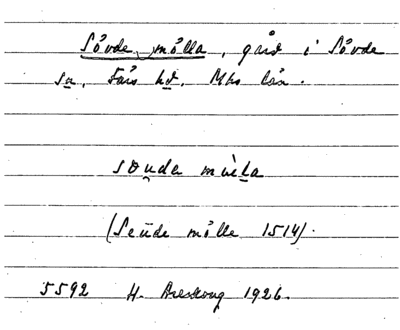 Sövde mölla, gård i Sövde
sn, Färs hd, Mhs län.
souda mœla
(Seüde mölle 1514).
5592 H. Areskoug 1926.